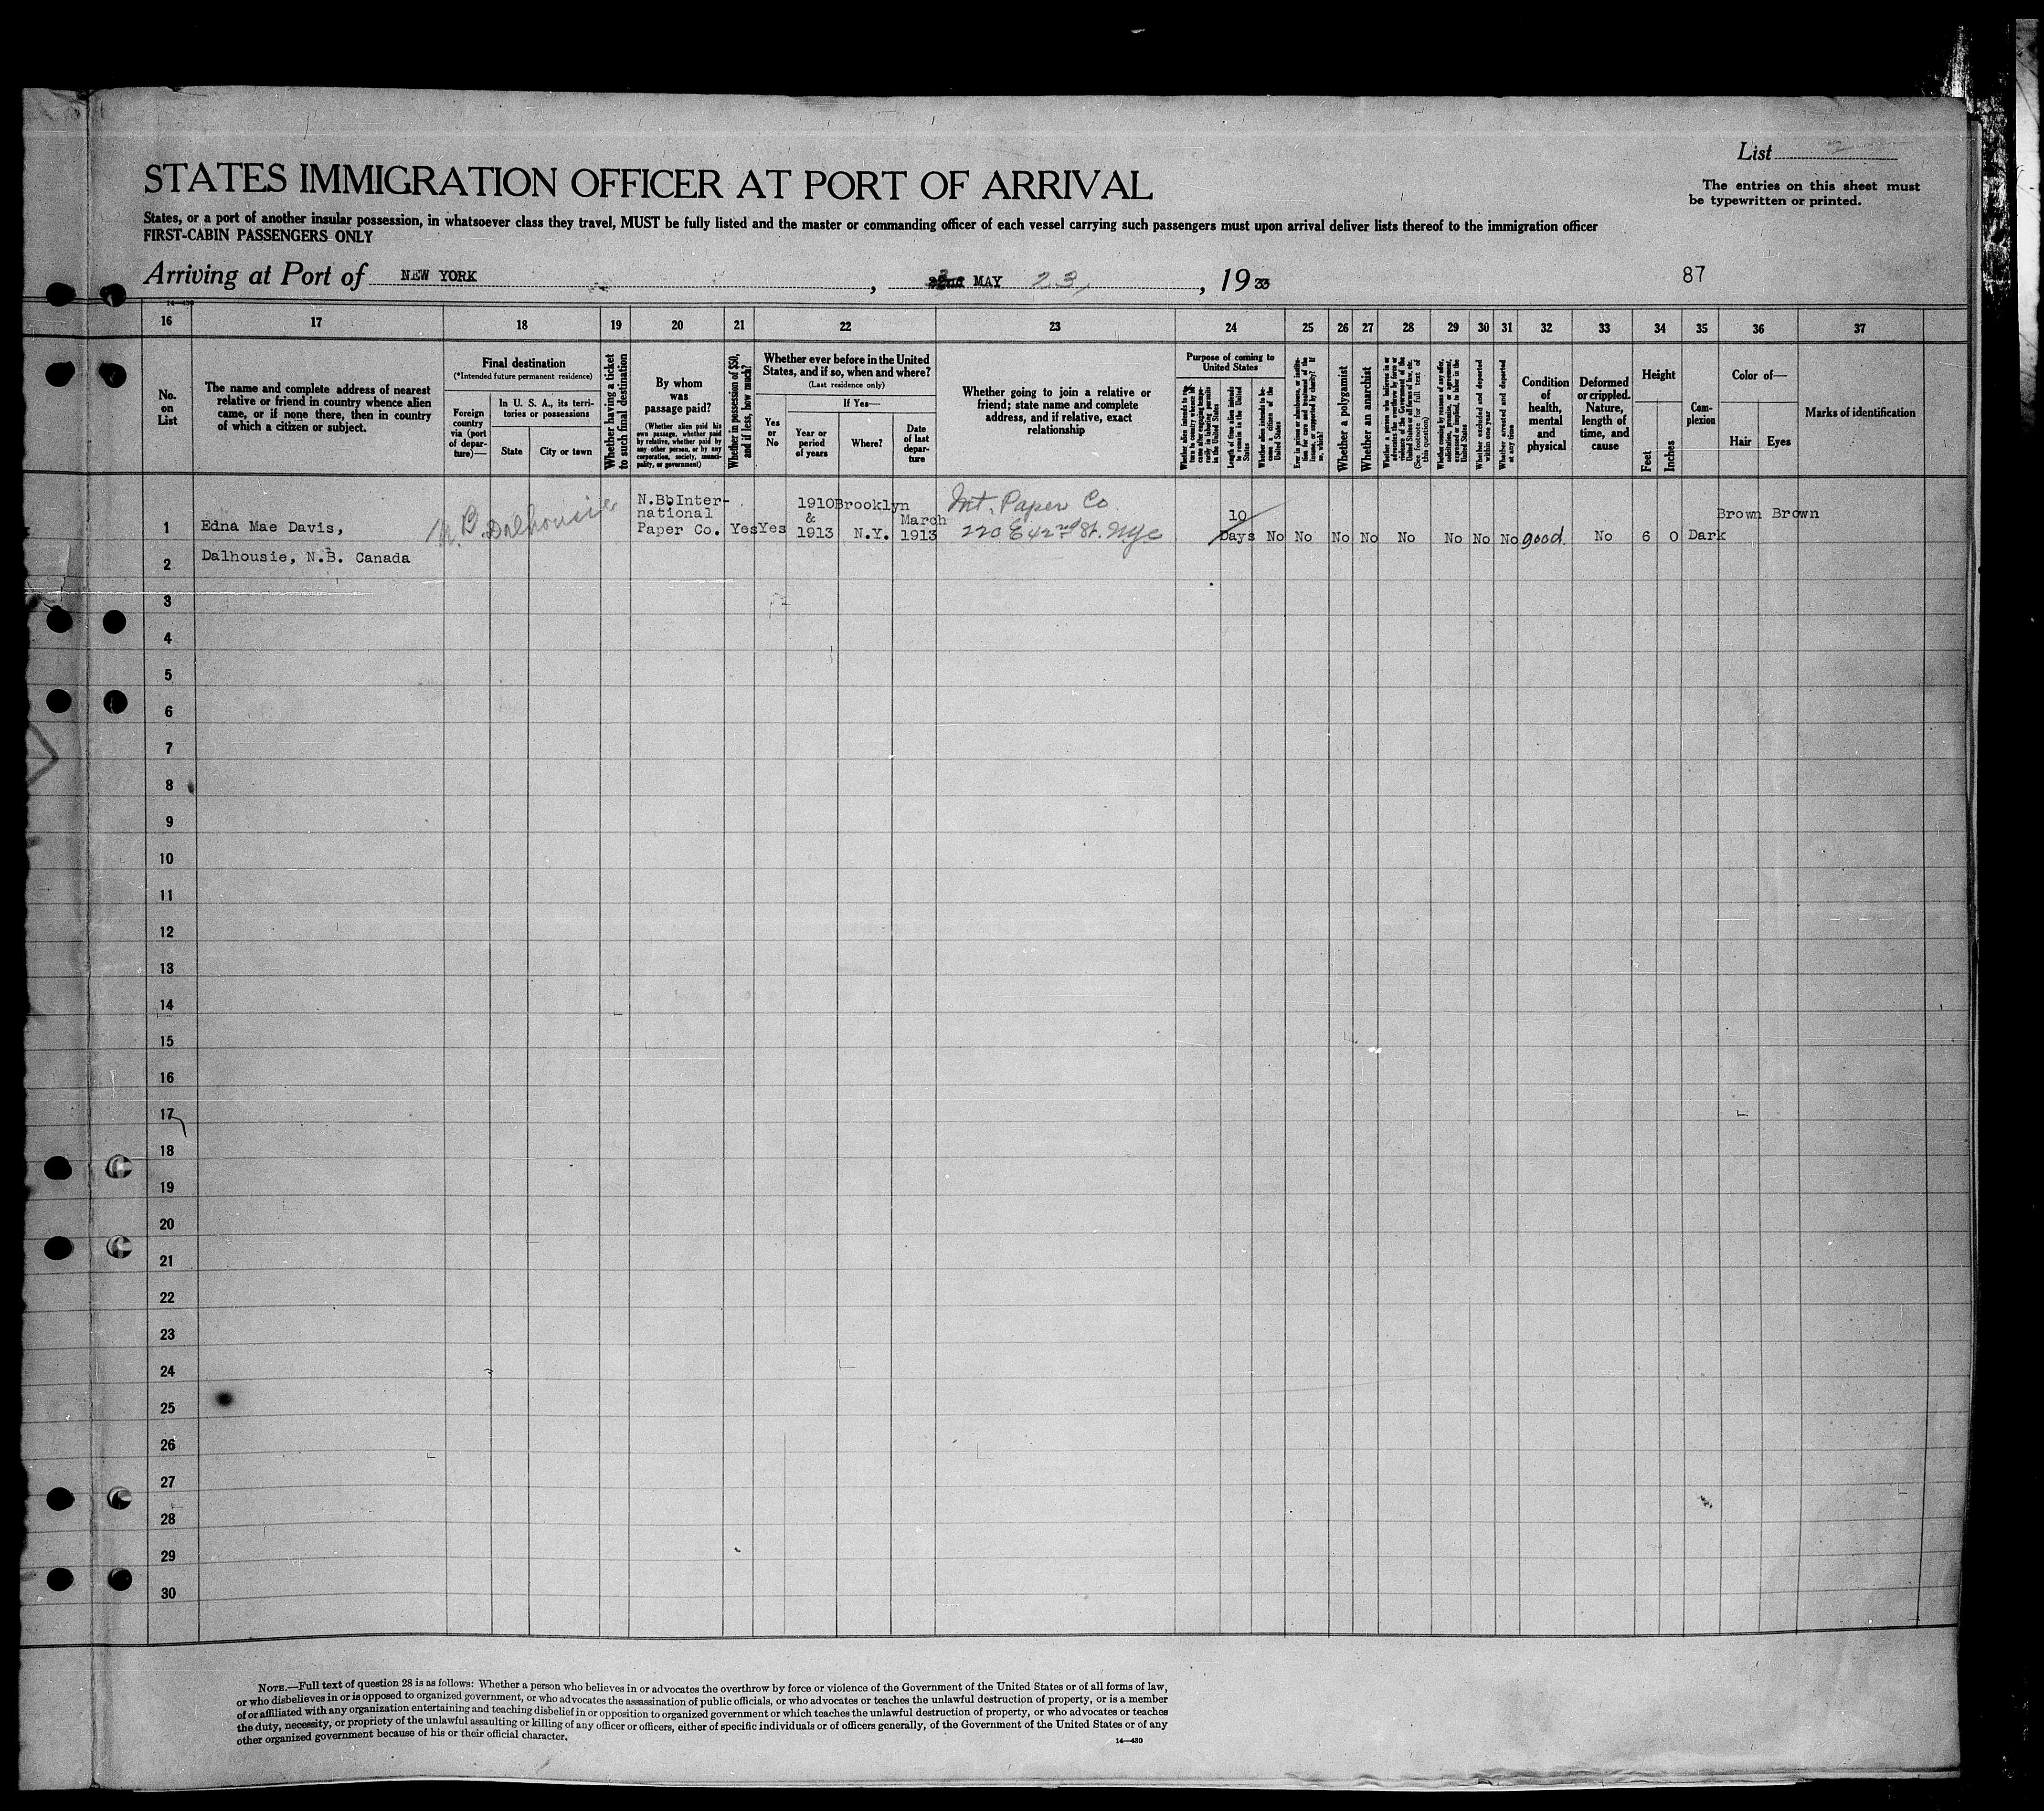 List 2
The entries on this sheet must
be typewritten or printed.
STATES IMMIGRATION OFFICER AT PORT OF ARRIVAL
States, or a port of another insular possession, in whatsoever class they travel, MUST be fully listed and the master or commanding officer of each vessel carrying such passengers must upon arrival deliver lists thereof to the immigration officer
FIRST-CABIN PASSENGERS ONLY
Arriving at Port of NEW YORK, MAY 23, 1933
87
14—430
16 17 18 19 20 21 22 23 24 25 26 27 28 29 30 31 32 33 34 35 36 37
No.
on
List
The name and complete address of nearest
relative or friend in country whence alien
came, or if none there, then in country
of which a citizen or subject.
Final destination
(*Intended future permanent residence)
Foreign
country
via (port
of depar-
ture)—
In U. S. A., its terri-
tories or possessions
State
City or town
Whether having a ticket
to such final destination
By whom
was
passage paid?
(Whether alien paid his
own passage, whether paid
by relative, whether paid by
any other person, or by any
corporation, society, munici-
pality, or government)
Whether in possession of $50,
and if less, how much?
Whether ever before in the United
States, and if so, when and where?
(Last residence only)
Yes
or
No
If Yes—
Year or
period
of years
Where?
Date
of last
depar-
ture
Whether going to join a relative or
friend; state name and complete
address, and if relative, exact
relationship
Purpose of coming to
United States
Whether alien intends to re-
turn to country whence he
came after engaging tempo-
rarily in laboring pursuits
in the United States
Length of time alien intends
to remain in the United
States
Whether alien intends to be-
come a citizen of the
United States
Ever in prison or almshouse, or institu-
tion for care and treatment of the
insane, or supported by charity? If
so, which?
Whether a polygamist
Whether an anarchist
Whether a person who believes in or
advocates the overthrow by force or
violence of the Government of the
United States or all forms of law, etc.
(See footnote for full text of
this question)
Whether coming by reasons of any offer,
solicitation, promise, or agreement,
expressed or implied, to labor in the
United States
Whether excluded and deported
within one year
Whether arrested and deported
at any time
Condition
of
health,
mental
and
physical
Deformed
or crippled.
Nature,
length of
time, and
cause
Height
Feet
Inches
Com-
plexion
Color of—
Hair
Eyes
Marks of identification
1 Edna Mae Davis,
Dalhousie, N.B. Canada
N.B. Dalhousie
N.B. Inter-
national
Paper Co.
Yes
Yes
1910
&
1913
Brooklyn
N.Y.
March
1913
Int. Paper Co
220 E 42nd St. Nyc
10
Days
No No No No No No No No good. No 6 0 Dark Brown Brown
2
3
4
5
6
7
8
9
10
11
12
13
14
15
16
17
18
19
20
21
22
23
24
25
26
27
28
29
30
NOTE.—Full text of question 28 is as follows: Whether a person who believes in or advocates the overthrow by force or violence of the Government of the United States or of all forms of law,
or who disbelieves in or is opposed to organized government, or who advocates the assassination of public officials, or who advocates or teaches the unlawful destruction of property, or is a member
of or affiliated with any organization entertaining and teaching disbelief in or opposition to organized government or which teaches the unlawful destruction of property, or who advocates or teaches
the duty, necessity, or propriety of the unlawful assaulting or killing of any officer or officers, either of specific individuals or of officers generally, of the Government of the United States or of any
other organized government because of his or their official character.
14—430